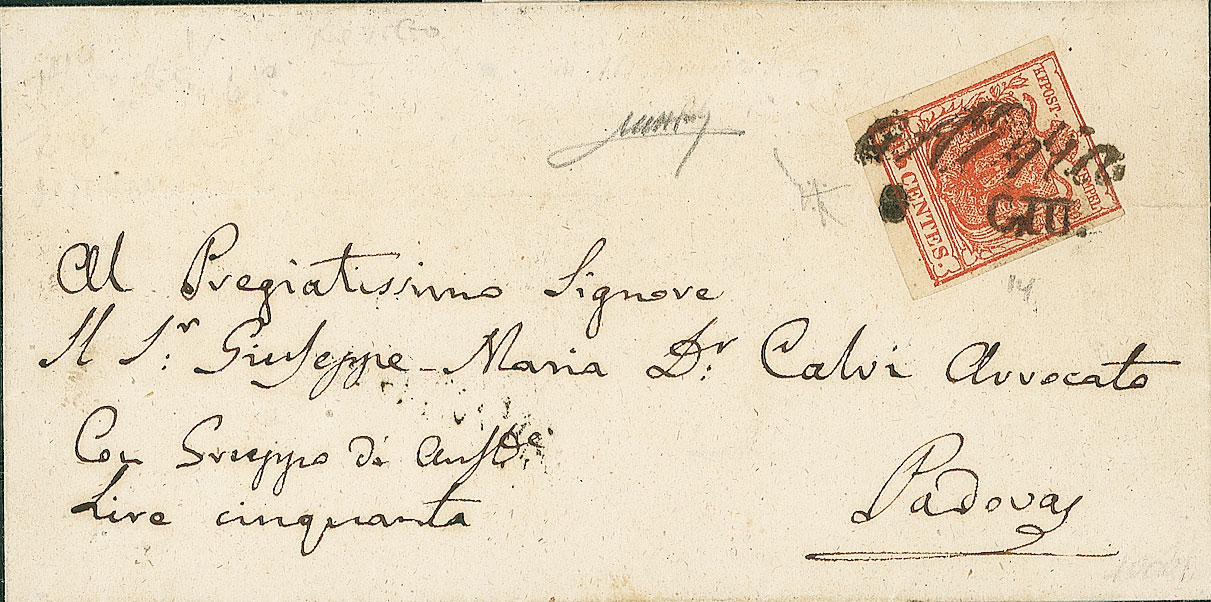 KKPOST-STEMPEL
CENTES.
GIU.
Al Pregiatissimo Signore
Il S.r Giuseppe-Maria D.r Calvi Avvocato
Con Gruppo di Aust.e
Lire cinquanta
Padova
14